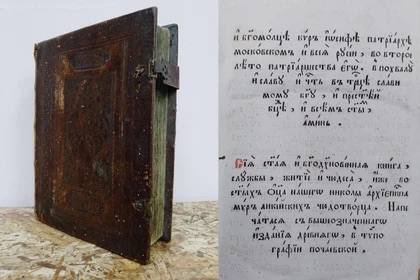 и҆ бг҃омо́лце кѵ́ръ і҆ѡ́сифѣ патрїа́рхѣ
моско́вскомъ и҆ всеѧ̀ рꙋсі́и, во второ́е
лѣ́то патрїа́ршества є҆гѡ̀. в похвалꙋ̀
и҆ сла́вꙋ и҆ че́сть в трⷪ҇цѣ сла́ви
момꙋ бг҃ꙋ, и҆ прест҃ѣ́й
бцⷣе, и҆ все́мъ ст҃ы́м,
а҆ми́нь.
Сїѧ̀ ст҃а́ѧ и҆ бг҃одꙋхнове́ннаѧ кни́га
слꙋ́жбы, житїѐ и҆ чюдеса̀, и҆́же во
ст҃ы́хъ ѻ҆ц҃а̀ на́шегѡ нико́лы а҆рхїепⷭ҇па
мѵ́ръ ликі́йскихъ чюдотво́рца. Напе
ча́тасѧ с вышеозна́ченнагѡ
и҆зда́нїѧ дре́внѧгѡ, в тѵпо
гра́фїи поча́евской.